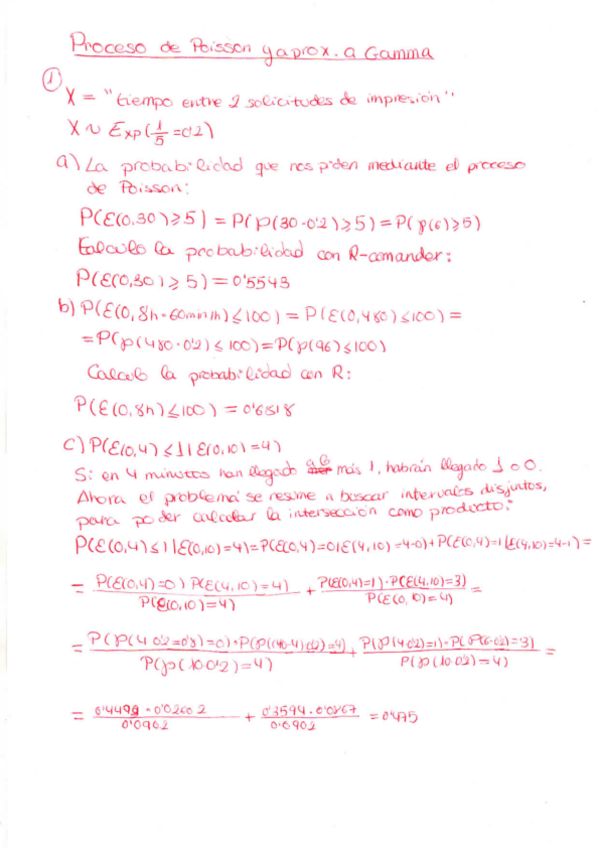 Proceso de Poisson y aprox. a Gamma
① X = "tiempo entre 2 solicitudes de impresión"
X ~ Exp(1/5 = 0'2)
a) La probabilidad que nos piden mediante el proceso
de Poisson:
P(ε(0,30) ≥ 5) = P(℘(30·0'2) ≥ 5) = P(℘(6) ≥ 5)
Calculo la probabilidad con R-comander:
P(ε(0,30) ≥ 5) = 0'5543
b) P(ε(0, 8h·60min/h) ≤ 100) = P(ε(0,480) ≤ 100) =
= P(℘(480·0'2) ≤ 100) = P(℘(96) ≤ 100)
Calculo la probabilidad con R:
P(ε(0,8h) ≤ 100) = 0'6818
c) P(ε(0,4) ≤ 1 | ε(0,10) = 4)
Si en 4 minutos han llegado a lo más 1, habrán llegado 1 o 0.
Ahora el problema se resume a buscar intervalos disjuntos,
para poder calcular la intersección como producto:
P(ε(0,4) ≤ 1 | ε(0,10) = 4) = P(ε(0,4) = 0 | ε(4,10) = 4-0) + P(ε(0,4) = 1 | ε(4,10) = 4-1) =
= P(ε(0,4) = 0) P(ε(4,10) = 4) / P(ε(0,10) = 4) + P(ε(0,4) = 1)·P(ε(4,10) = 3) / P(ε(0,10) = 4) =
= P(℘(4·0'2 = 0'8) = 0)·P(℘((10-4)·0'2) = 4) / P(℘(10·0'2) = 4) + P(℘(4·0'2) = 1)·P(℘(6·0'2) = 3) / P(℘(10·0'2) = 4) =
= 0'4493·0'02602 / 0'0902 + 0'3594·0'0867 / 0'0902 = 0'475